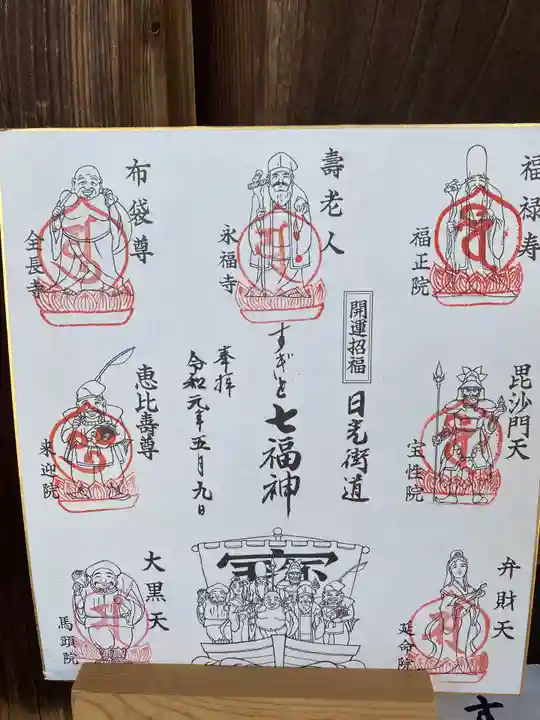 福禄寿
福正院
壽老人
永福寺
布袋尊
全長寺
開運招福
日光街道
すぎと七福神
奉拝
令和元年五月九日
毘沙門天
宝性院
恵比壽尊
来迎院
弁財天
延命院
寳
大黒天
馬頭院